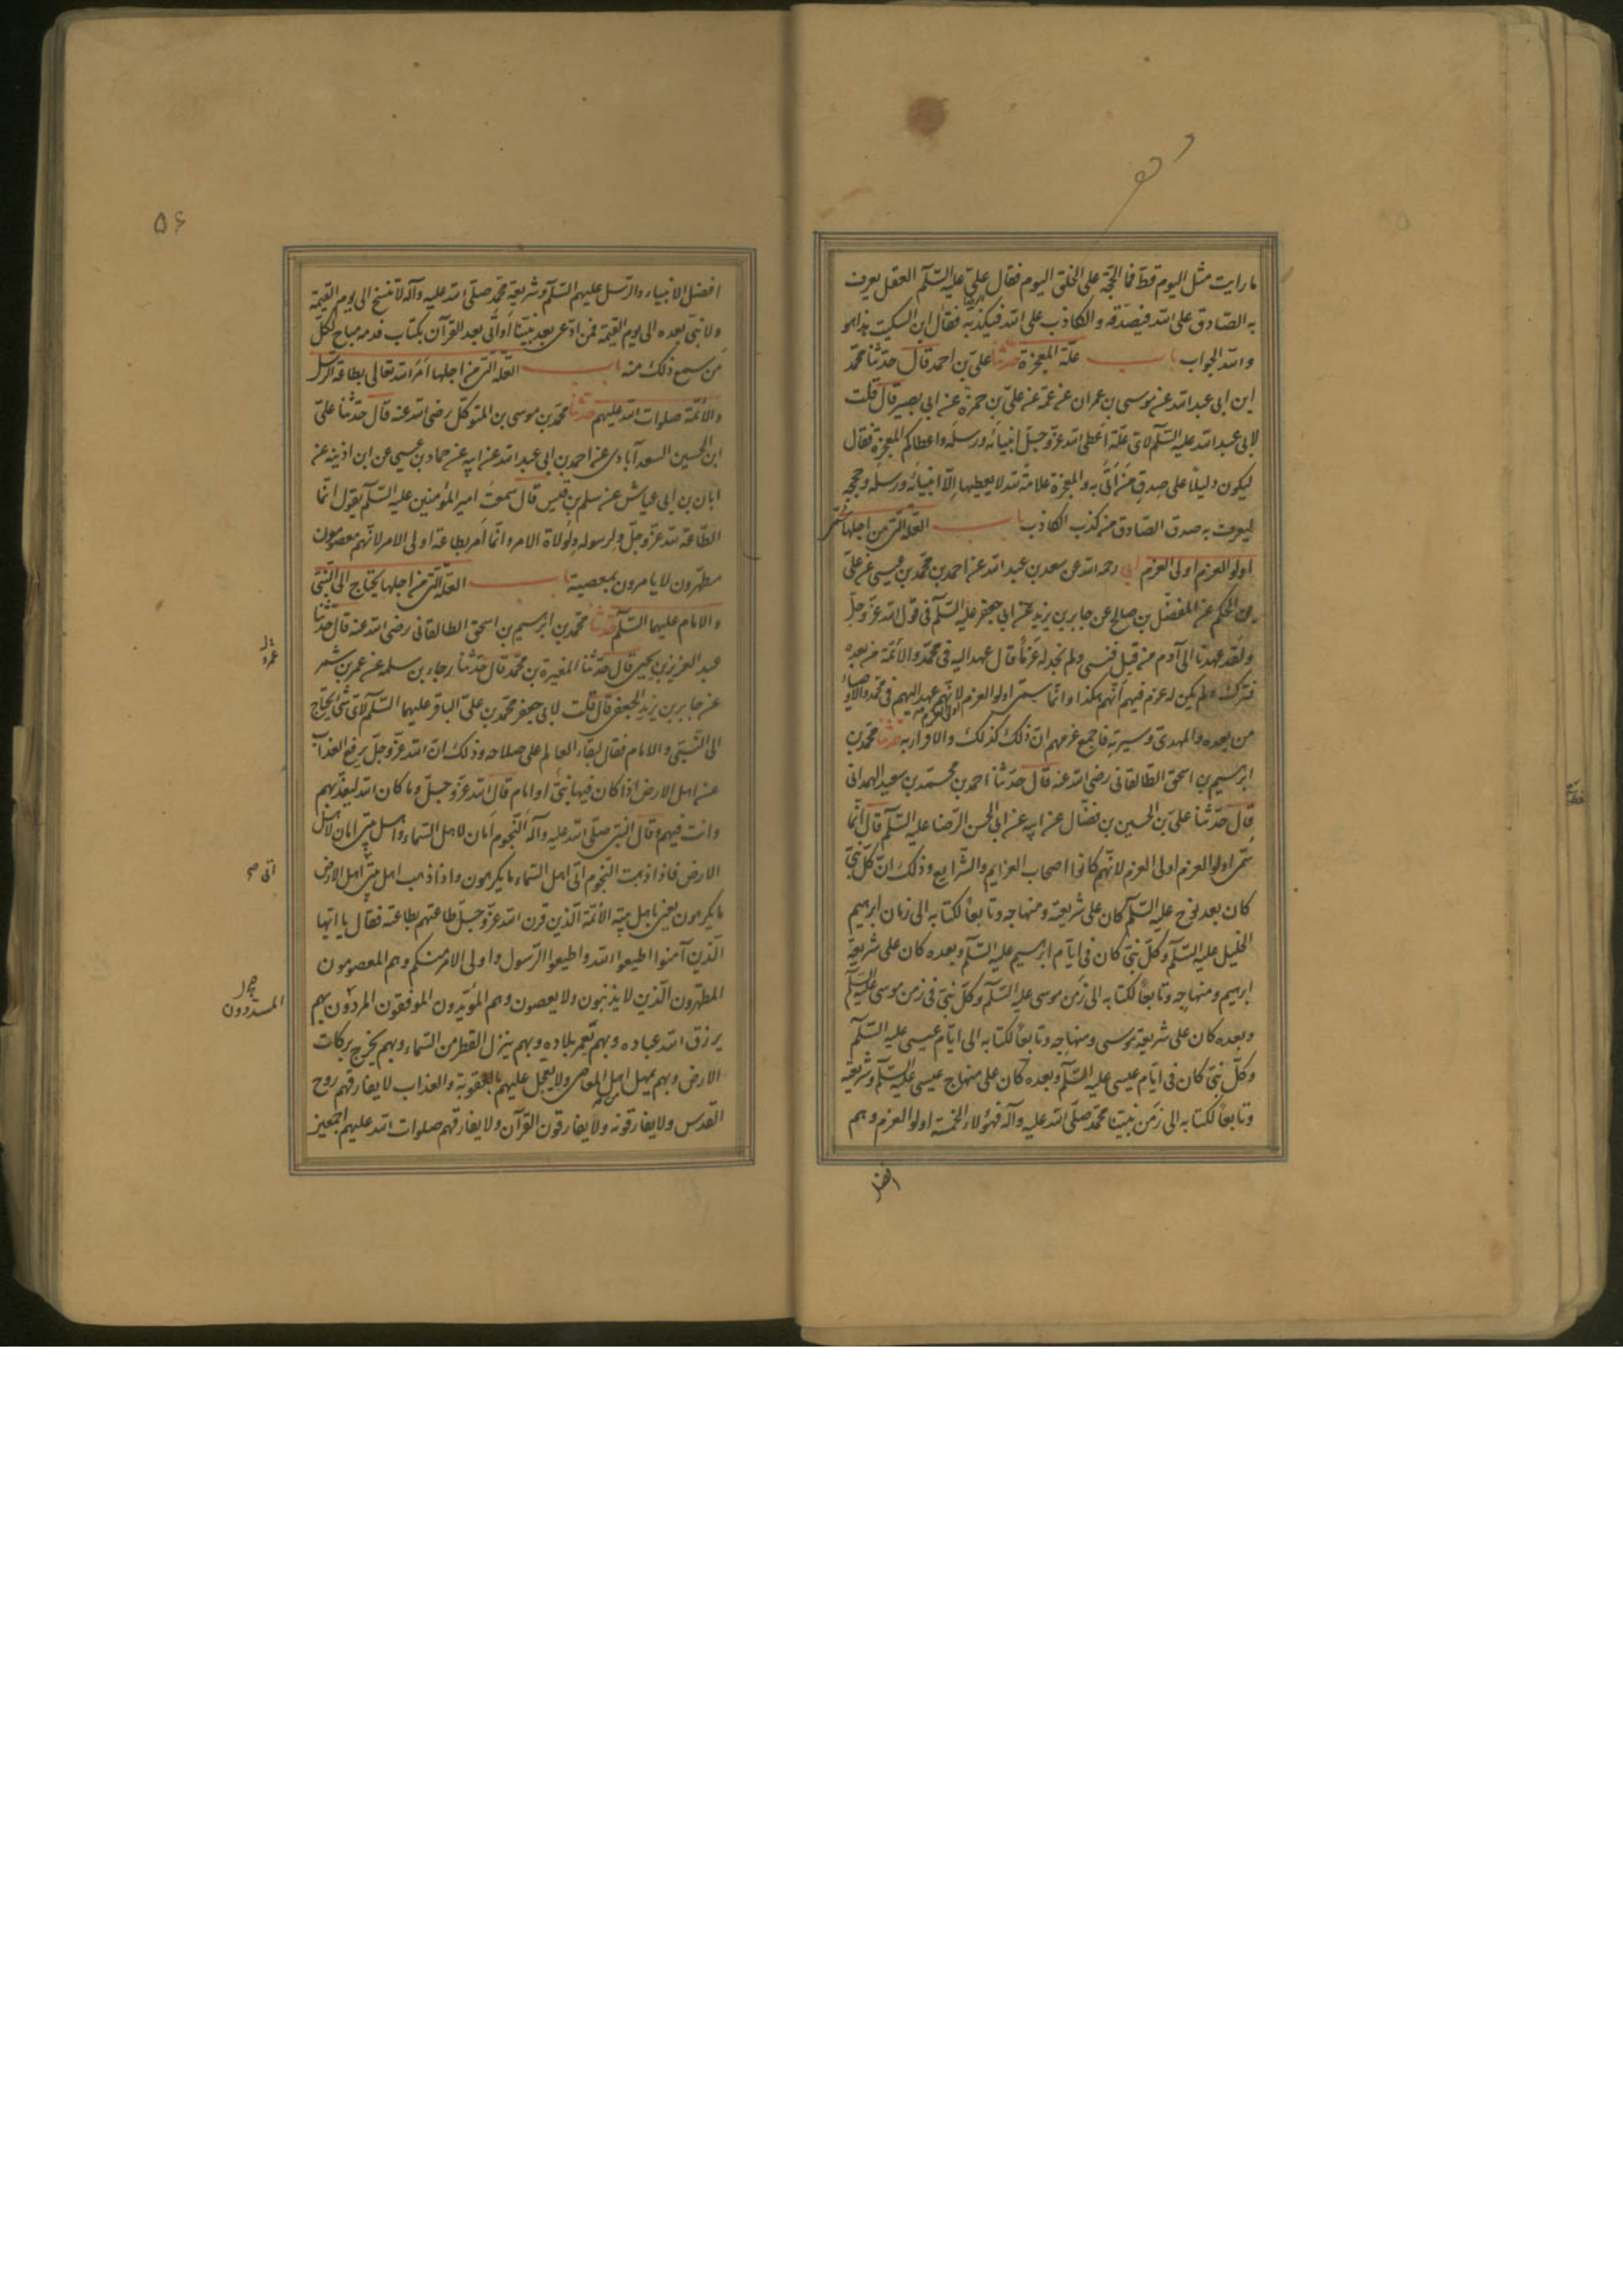 ما رايت مثل اليوم قط فما الحجة على الخلق اليوم فقال على عليه السّلم العقل يعرف
به الصّادق على الله فيصدّقه و الكاذب على الله فيكذّبه فقال ابن السكيت هذا هو
والله الجواب باب علّة المعجزة حدثنا علىّ بن احمد قال حدّثنا محمّد
ابن ابى عبد الله عن موسى بن عمران عن عمّه عن علىّ بن حمزة عن ابى بصير قال قلت
لابى عبد الله عليه السّلم لاىّ علّة اعطى الله عزّ وجلّ انبيائه ورسله واعطاكم المعجزة فقال
ليكون دليلًا على صدق من اتى به والمعجزة علامة لله لا يعطيها الّا انبيائه ورسله وحججه
ليعرف به صدق الصّادق من كذب الكاذب باب العلّة الّتى من اجلها سُمّى
اولو العزم اولى العزم ابى رحمه الله عن سعد بن عبد الله عن احمد بن محمّد بن عيسى عن علىّ
بن الحكم عن المفضّل بن صالح عن جابر بن يزيد عن ابى جعفر عليه السّلم فى قول الله عزّ وجلّ
ولقد عهدنا الى آدم من قبل فنسى ولم نجد له عزمًا قال عهد اليه فى محمّد والائمّة من بعده
فترك ولم يكن له عزم فيهم انّهم هكذا وانّما سمّى اولو العزم لانّهم عهد اليهم فى محمّد والاوصياء
من بعده والمهدىّ وسيرته فاجمع عزمهم انّ ذلك كذلك والاقرار به حدثنا محمّد بن
ابرهيم بن اسحق الطّالقانى رضى الله عنه قال حدّثنا احمد بن محمّد بن سعيد الهمدانى
قال حدّثنا علىّ بن الحسين بن فضّال عن ابيه عن ابى الحسن الرّضا عليه السّلم قال انّما
سُمّى اولو العزم اولى العزم لانّهم كانوا اصحاب العزايم والشّرايع وذلك انّ كلّ نبىّ
كان بعد نوح عليه السّلم كان على شريعته ومنهاجه وتابعًا لكتابه الى زمان ابرهيم
الخليل عليه السّلم وكلّ نبىّ كان فى ايّام ابرهيم عليه السّلم وبعده كان على شريعة
ابرهيم ومنهاجه وتابعًا لكتابه الى زمن موسى عليه السّلم وكلّ نبىّ فى زمن موسى عليه السّلم
وبعده كان على شريعة موسى ومنهاجه وتابعًا لكتابه الى ايّام عيسى عليه السّلم
وكلّ نبىّ كان فى ايّام عيسى عليه السّلم وبعده كان على منهاج عيسى عليه السّلم وشريعته
وتابعًا لكتابه الى زمن نبيّنا محمّد صلّى الله عليه وآله فهؤلاء الخمسة اولو العزم وهم
افضل
۵۶
افضل الانبياء والرّسل عليهم السّلم وشريعة محمّد صلّى الله عليه وآله لا تنسخ الى يوم القيمة
ولا نبىّ بعده الى يوم القيمة فمن ادّعى بعد نبيّنا او اتى بعد القرآن بكتاب فدمه مباح لكلّ
من سمع ذلك منه باب العلّة الّتى من اجلها امر الله تعالى بطاعة الرّسل
والائمّة صلوات الله عليهم حدثنا محمّد بن موسى بن المتوكّل رضى الله عنه قال حدّثنا علىّ
ابن الحسين السعدآبادى عن احمد بن ابى عبد الله عن ابيه عن حماد بن عيسى عن ابن اذينه عن
ابان بن ابى عياش عن سلم بن قيس قال سمعت امير المؤمنين عليه السّلم يقول انّما
الطّاعة لله عزّ وجلّ ولرسوله ولولاة الامر وانّما امر بطاعة اولى الامر لانّهم معصومون
مطهّرون لا يامرون بمعصية باب العلّة الّتى من اجلها يحتاج الى النّبىّ
والامام عليهما السّلم حدثنا محمّد بن ابرهيم بن اسحق الطالقانى رضى الله عنه قال حدّثنا
عبد العزيز بن يحيى قال حدّثنا المغيرة بن محمّد قال حدّثنا رجاء بن سلمه عن عمر بن شمر
عمرو
عن جابر بن يزيد الجعفى قال قلت لابى جعفر محمّد بن علىّ الباقر عليهما السّلم لاىّ شئ يحتاج
الى النّبىّ والامام فقال لبقاء العالم على صلاحه وذلك انّ الله عزّ وجلّ يرفع العذاب
عن اهل الارض اذا كان فيها نبىّ او امام قال الله عزّ وجلّ وما كان الله ليعذّبهم
وانت فيهم وقال النبىّ صلّى الله عليه وآله النّجوم امان لاهل السّماء واهل بيتى امان لاهل
الارض فاذا ذهبت النّجوم اتى اهل السّماء ما يكرهون واذا ذهب اهل بيتى اهل الارض
اتى صح
ما يكرهون يعنى باهل بيته الائمّة الّذين قرن الله عزّ وجلّ طاعتهم بطاعته فقال يا ايّها
الّذين آمنوا اطيعوا الله واطيعوا الرّسول واولى الامر منكم وهم المعصومون
المطهّرون الّذين لا يذنبون ولا يعصون وهم المؤيّدون الموفّقون المردؤن بهم
المسدّدون
يرزق الله عباده وبهم تعمر بلاده وبهم ينزل القطر من السّماء وبهم يخرج بركات
الارض وبهم يمهل اهل المعاصى ولا يعجل عليهم بالعقوبة والعذاب لا يفارقهم روح
القدس ولا يفارقونه ولا يفارقون القرآن ولا يفارقهم صلوات الله عليهم اجمعين